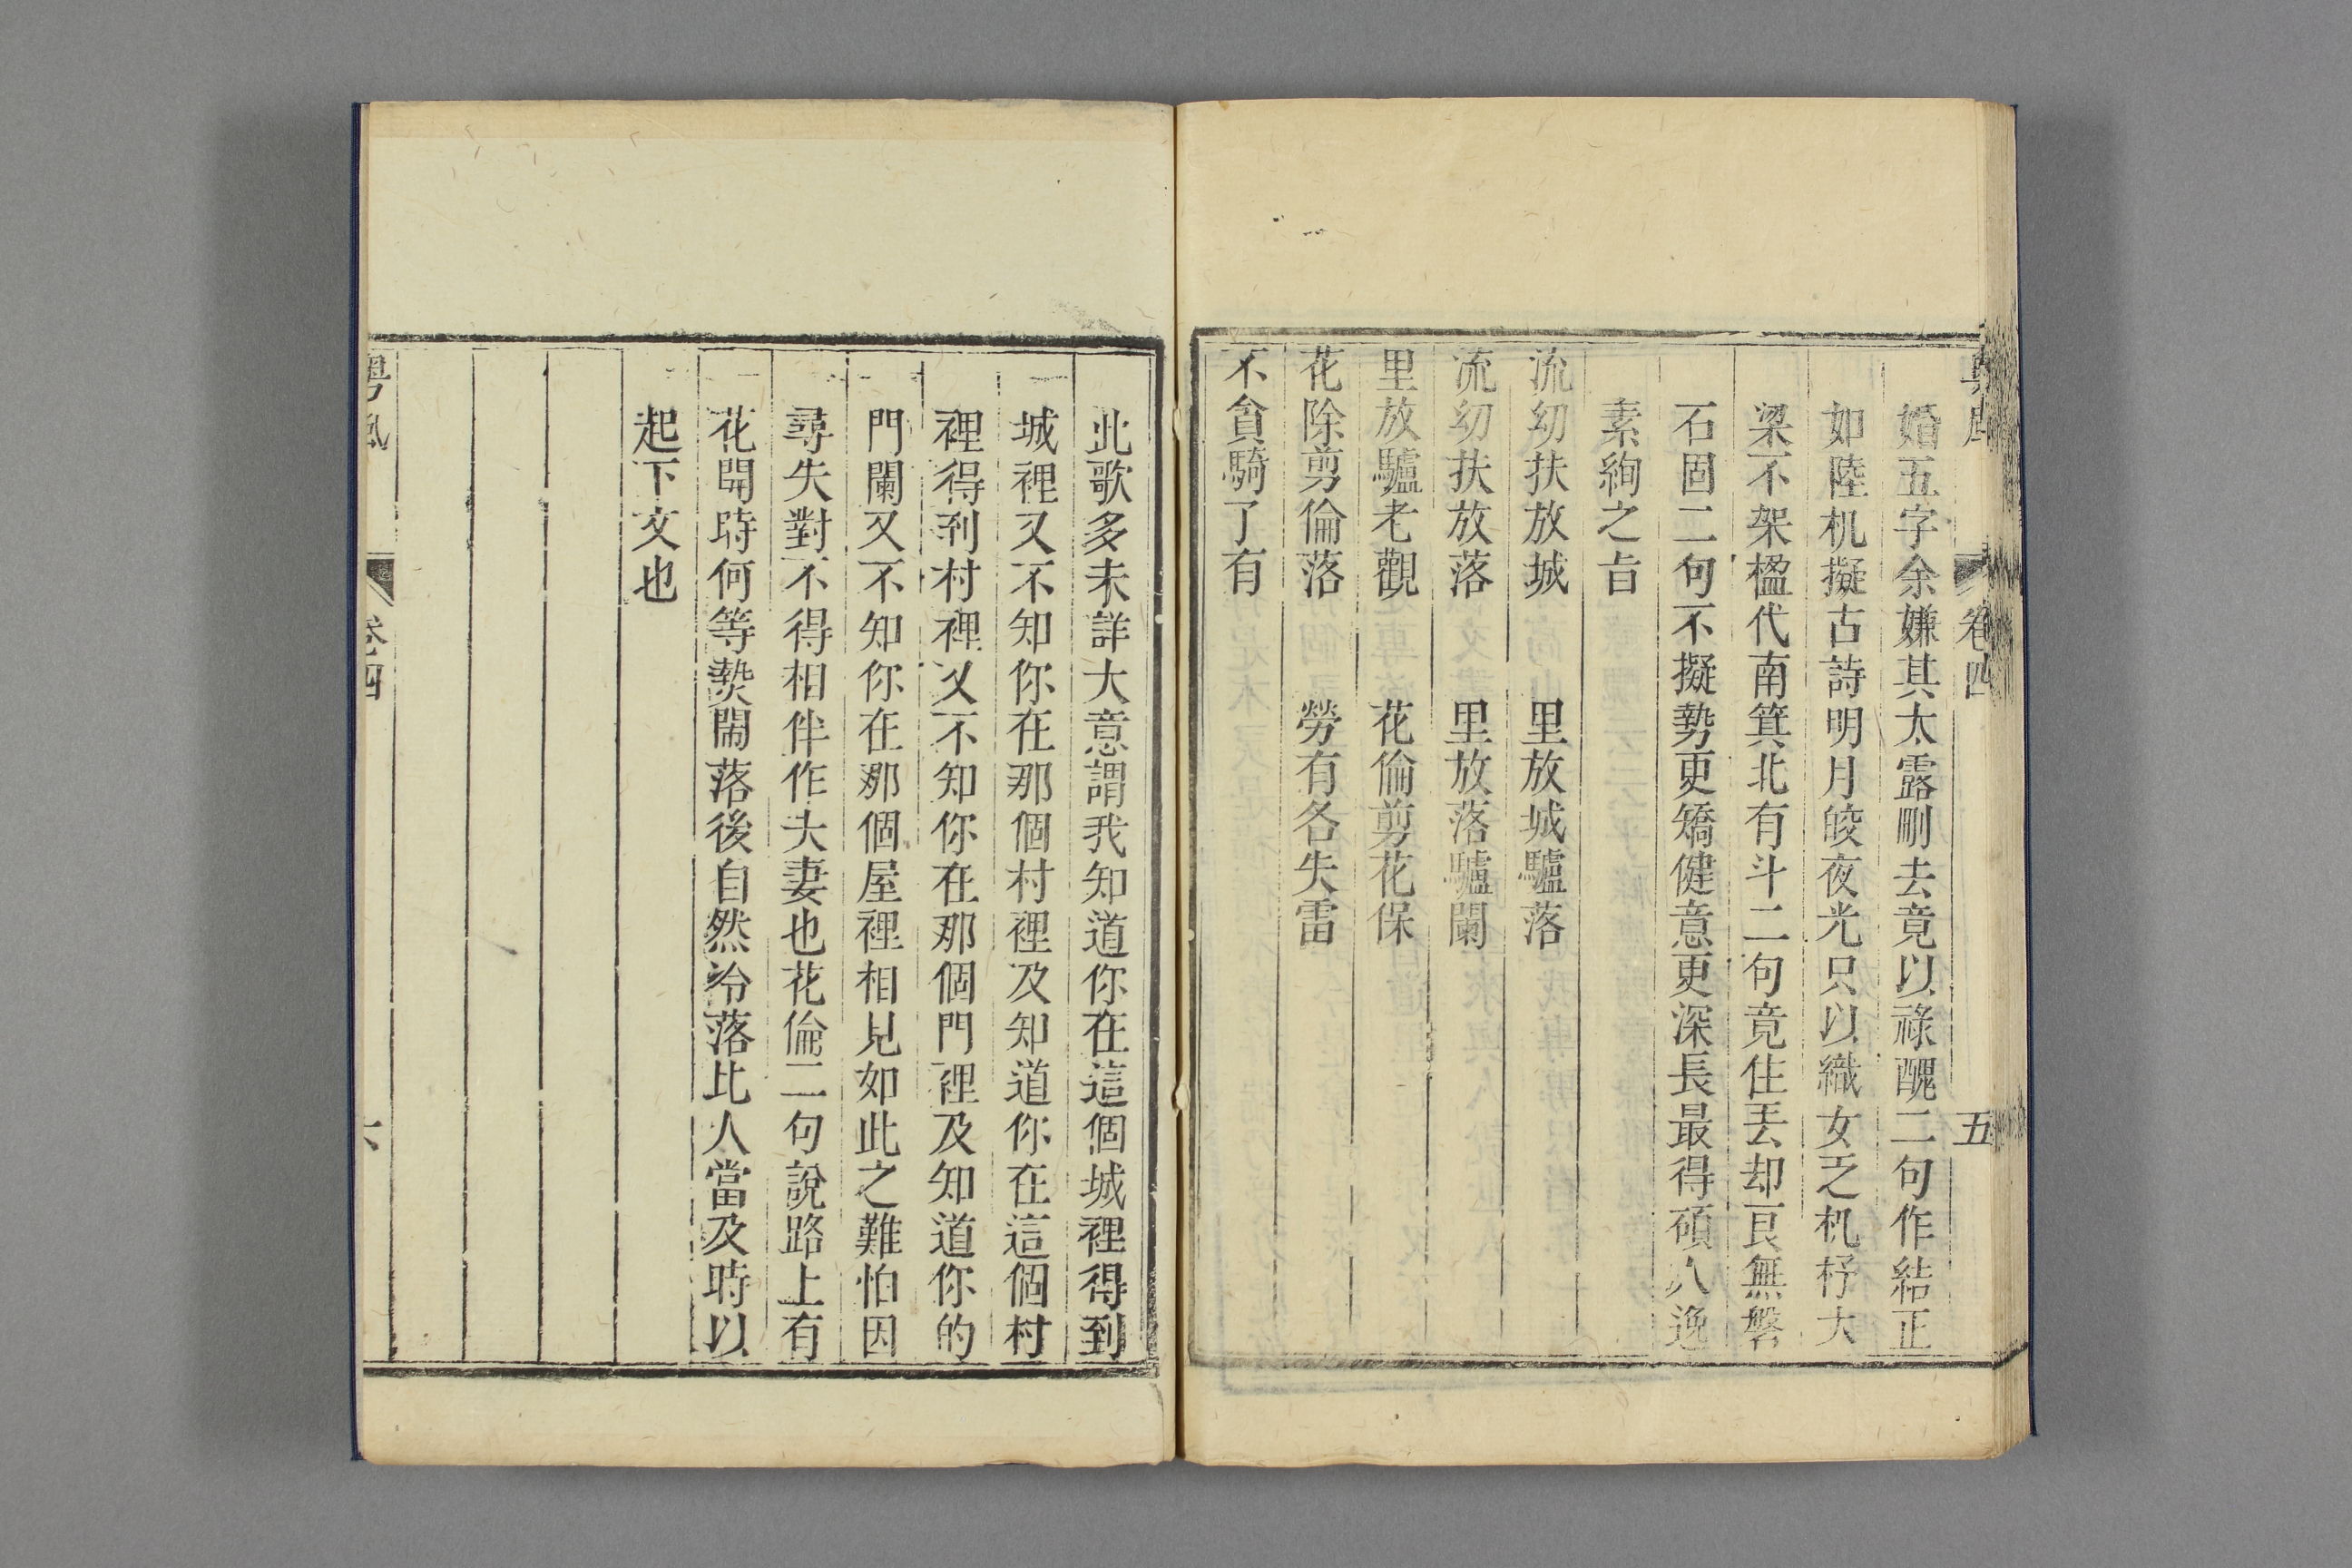 粵風 卷四 五
婚五字余嫌其太露刪去竟以祿醜二句作結正
如陸机擬古詩明月皎夜光只以織女乏机杼大
梁不架楹代南箕北有斗二句竟住丟却良無磐
石固二句不擬勢更矯健意更深長最得碩人逸
素絢之旨
流幼扶放城 里放城驢落
流幼扶放落 里放落驢闌
里放驢老觀 花倫剪花保
花除剪倫落 勞有各失雷
不貪騎了有
此歌多未詳大意謂我知道你在這個城裡得到
城裡又不知你在那個村裡及知道你在這個村
裡得到村裡又不知你在那個門裡及知道你的
門闌又不知你在那個屋裡相見如此之難怕因
尋失對不得相伴作夫妻也花倫二句說路上有
花開時何等𤍠閙落後自然冷落比人當及時以
起下文也
粵風 卷四 六